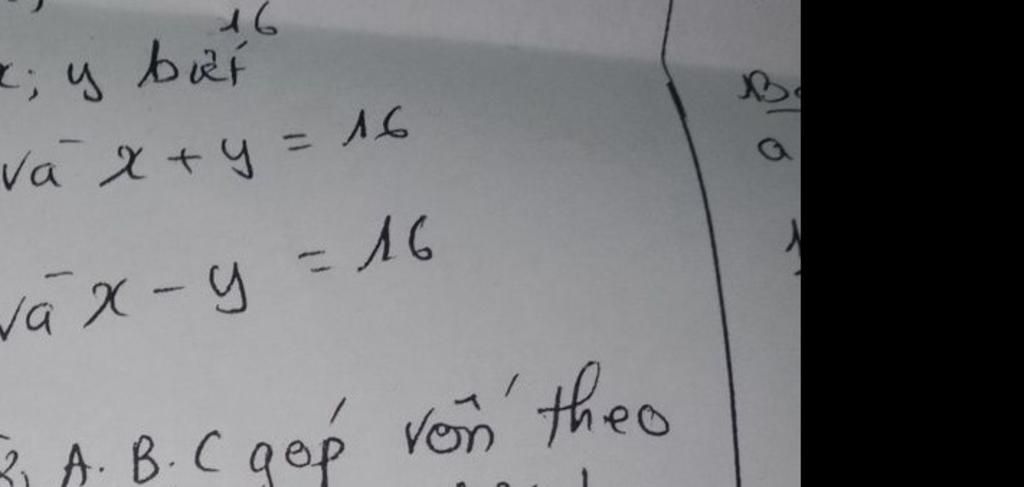 16
x; y biết
và x + y = 16
và x - y = 16
A. B. C góp vốn theo
a